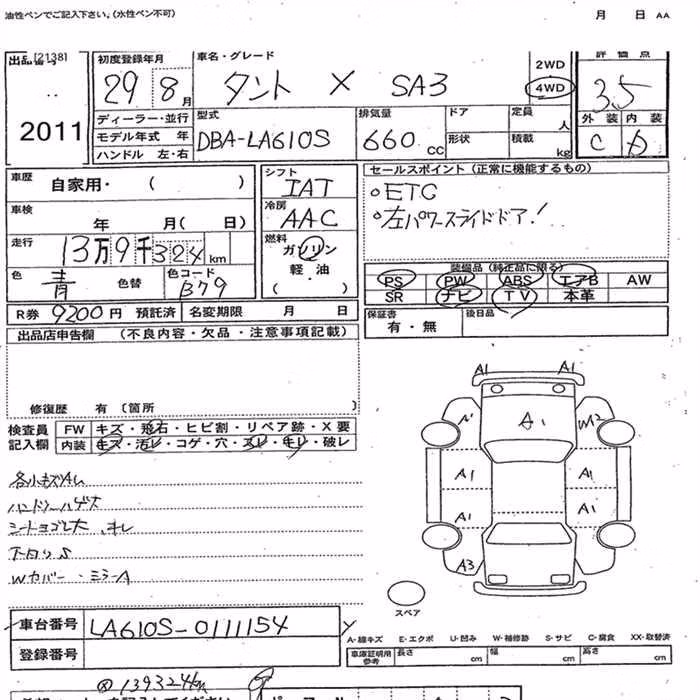 油性ペンでご記入下さい。(水性ペン不可) 月 日 AA
出品番号 [2138]
2011
初度登録年月 29 8 月
車名・グレード タント X SA3
2WD 4WD
評価点 3.5
ディーラー・並行
モデル年式 年
ハンドル 左・右
型式 DBA-LA610S
排気量 660 CC
ドア 形状
定員 人
積載 kg
外装 C
内装
車歴 自家用・( )
車検 年 月( 日)
走行 13万9千324 km
色 青 色替 色コード B79
シフト IAT
冷房 AAC
燃料 ガソリン
軽・油
( ・ )
セールスポイント (正常に機能するもの)
○ETC
○左パワースライドドア!
装備品 (純正品に限る)
PS PW ABS エアB AW
SR ナビ TV 本革
R券 9200円 預託済 名変期限 月 日
保証書 有・無
後日品
出品店申告欄 (不良内容・欠品・注意事項記載)
修復歴 有 (箇所 )
検査員記入欄 FW キズ・飛石・ヒビ割・リペア跡・X要
内装 キズ・汚レ・コゲ・穴・スレ・キレ・破レ
各小キズAL
ハンドルハゲ大
シートヨゴレ大、キレ
下回りS
Wカバー・ミラーA
A1 A1
A1
W2
A1 A1
A1 A1
A3
スペア
車台番号 LA610S-0111154
登録番号
A-線キズ E-エクボ U-凹み W-補修跡 S-サビ C-腐食 XX-取替済
車庫証明用参考 長さ cm 幅 cm 高さ cm
139324km